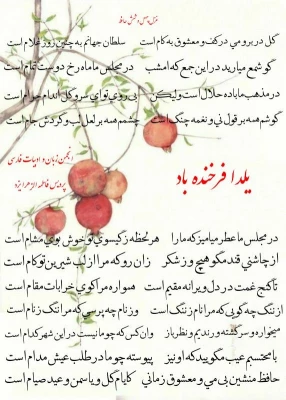 غزل چهل و ششم حافظ
گل در بر و می در کف و معشوق به کام است سلطان جهانم به چنین روز غلام است
گو شمع میارید در این جمع که امشب در مجلس ما ماه رخ دوست تمام است
در مذهب ما باده حلال است ولیکن بی روی تو ای سرو گل اندام حرام است
گوشم همه بر قول نی و نغمه چنگ است چشمم همه بر لعل لب و گردش جام است
انجمن زبان و ادبیات فارسی
پردیس فاطمه الزهرا یزد
یلدا فرخنده باد
در مجلس ما عطر میامیز که ما را هر لحظه ز گیسوی تو خوش بوی مشام است
از چاشنی قند مگو هیچ و ز شکر زان رو که مرا از لب شیرین تو کام است
تا گنج غمت در دل ویرانه مقیم است همواره مرا کوی خرابات مقام است
از ننگ چه گویی که مرا نام ز ننگ است وز نام چه پرسی که مرا ننگ ز نام است
میخواره و سرگشته و رندیم و نظرباز وان کس که چو ما نیست در این شهر کدام است
با محتسبم عیب مگویید که او نیز پیوسته چو ما در طلب عیش مدام است
حافظ منشین بی می و معشوق زمانی کایام گل و یاسمن و عید صیام است